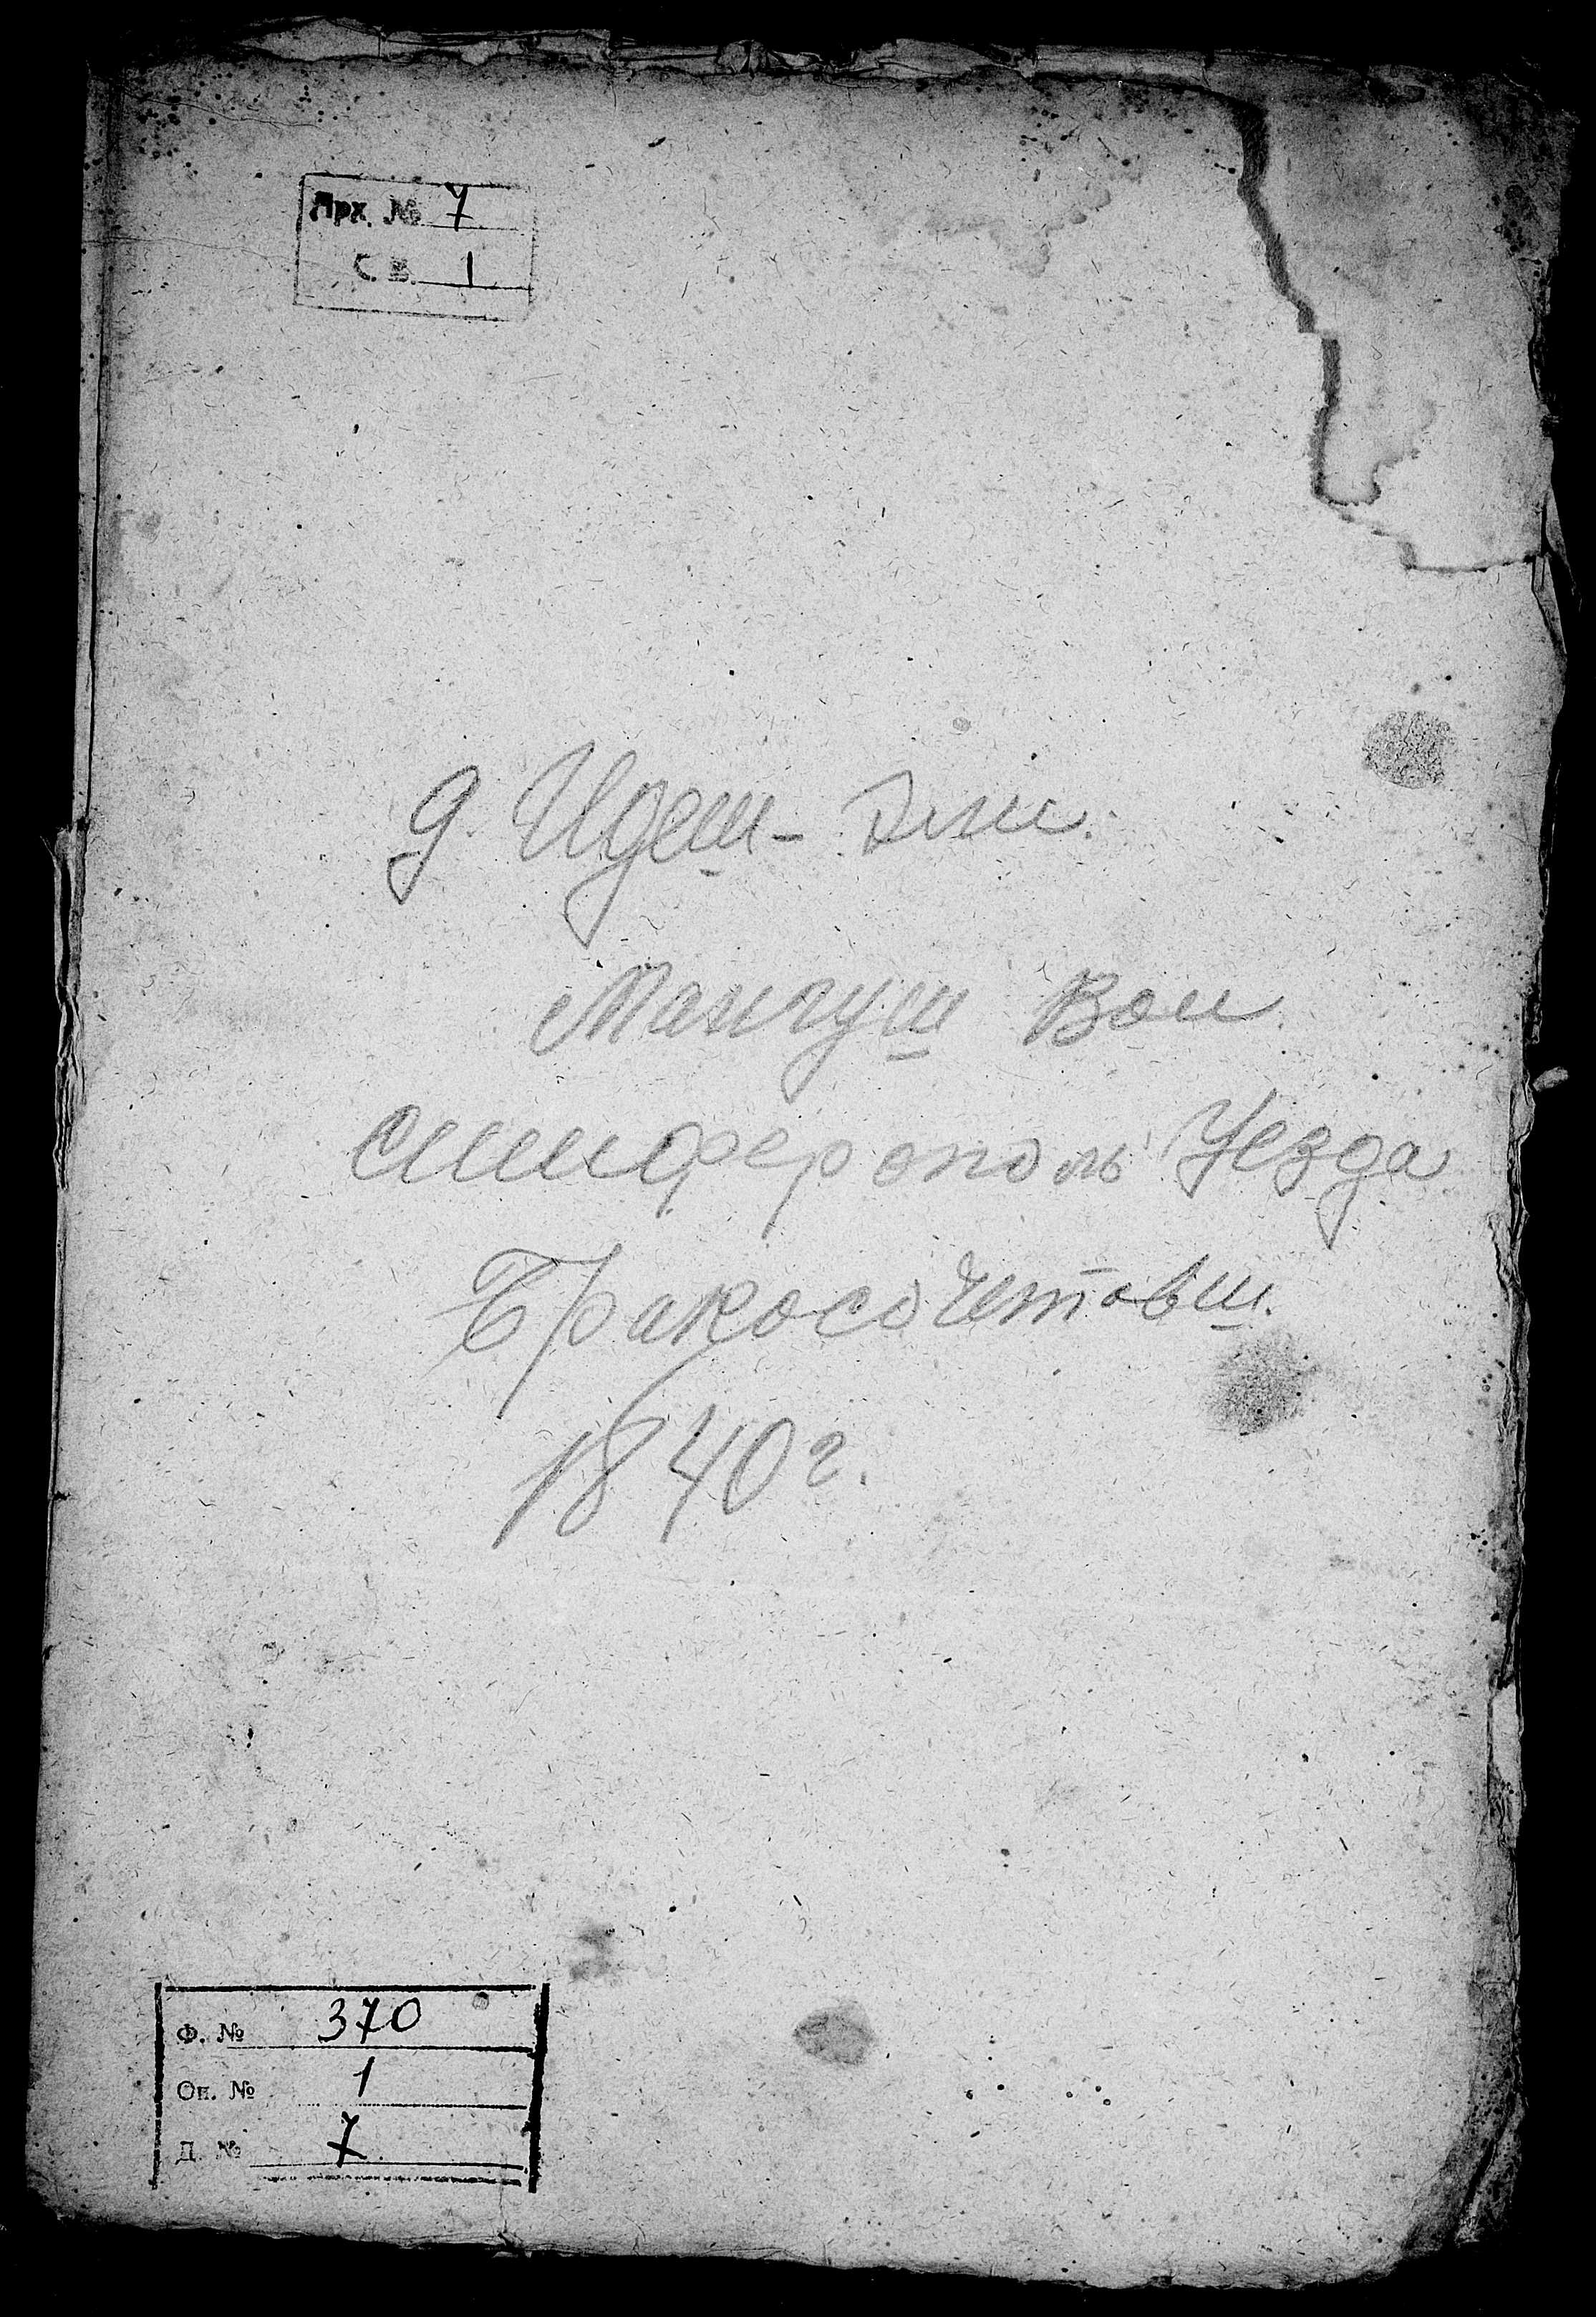 Арх. № 7
С В. 1
д Идеш-Эли.
Мангуш Вол
симферополь Уезда
Бракосочетовш.
1840 г.
Ф. № 370
Оп. № 1
Д. № 7